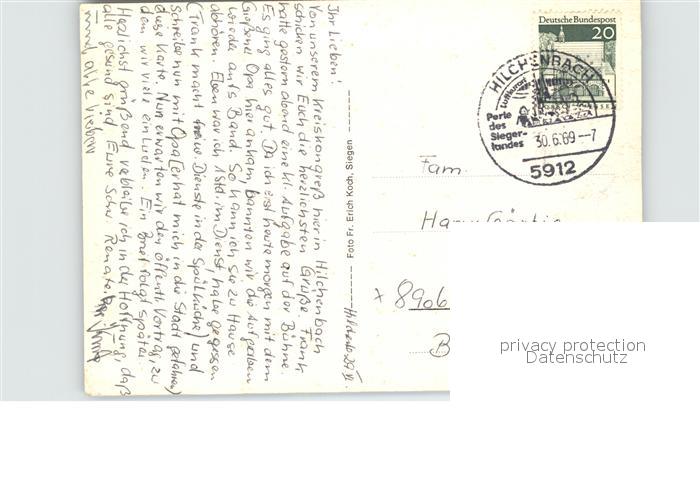 Ihr Lieben!
Von unserem Kreiskongreß hier in Hilchenbach
schicken wir Euch die herzlichsten Grüße. Frank
hatte gestern abend eine kl. Aufgabe auf der Bühne.
Es ging alles gut. Da ich erst heute morgen mit dem
Opa hier ankam, bannten wir die Aufgaben
wieder aufs Band. So kann ich sie zu Hause
abhören. Eben war ich 1 Std. im Dienst, habe gegessen
(Frank macht Dienste in der Spülküche) und
Schreibe nun mit Opa (er hat mich in die Stadt gefahren)
diese Karte. Nun erwarten wir den öffentl. Vortrag, zu
dem wir viele einluden. Ein Brief folgt später.
Herzlichst grüßend verbleibe ich in der Hoffnung, daß
alle gesund sind, Eure Schw. Renate
und alle Lieben
Foto Fr. Erich Koch, Siegen
Deutsche Bundespost
20
HILCHENBACH
Luftkurort
Perle
des
Sieger-
landes
30.6.69--7
5912
Fam.
8906
B
privacy protection
Datenschutz